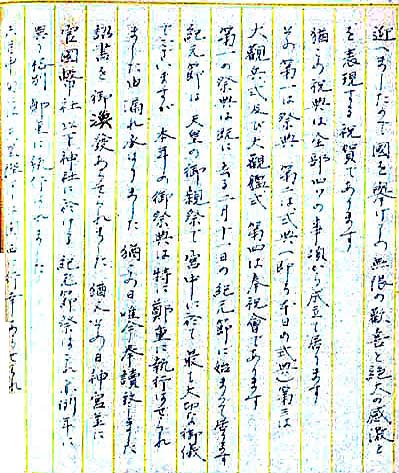 迎へましたので國を擧げての無限の歡喜と絶大の感激と
を表現する祝賀であります
猶この祝典は全部四つの事項から成立て居ります
その第一は祭典 第二は式典(即ち本日の式典)第三は
大觀兵式及び大觀艦式 第四は奉祝會であります
第一の祭典は既に去る二月十一日の紀元節に始まつて居ります
紀元節は天皇の御親祭で宮中に於て最も大切な御儀
でございますが本年の御祭典は特に鄭重に執行はせられ
ました由漏れ承はりました 猶この日唯今奉讀致しました
詔書を御渙發あらせられました 猶又この日神宮並に
官國幣社以下神社に於ける紀元節祭は
異り格別鄭重に執行はれました